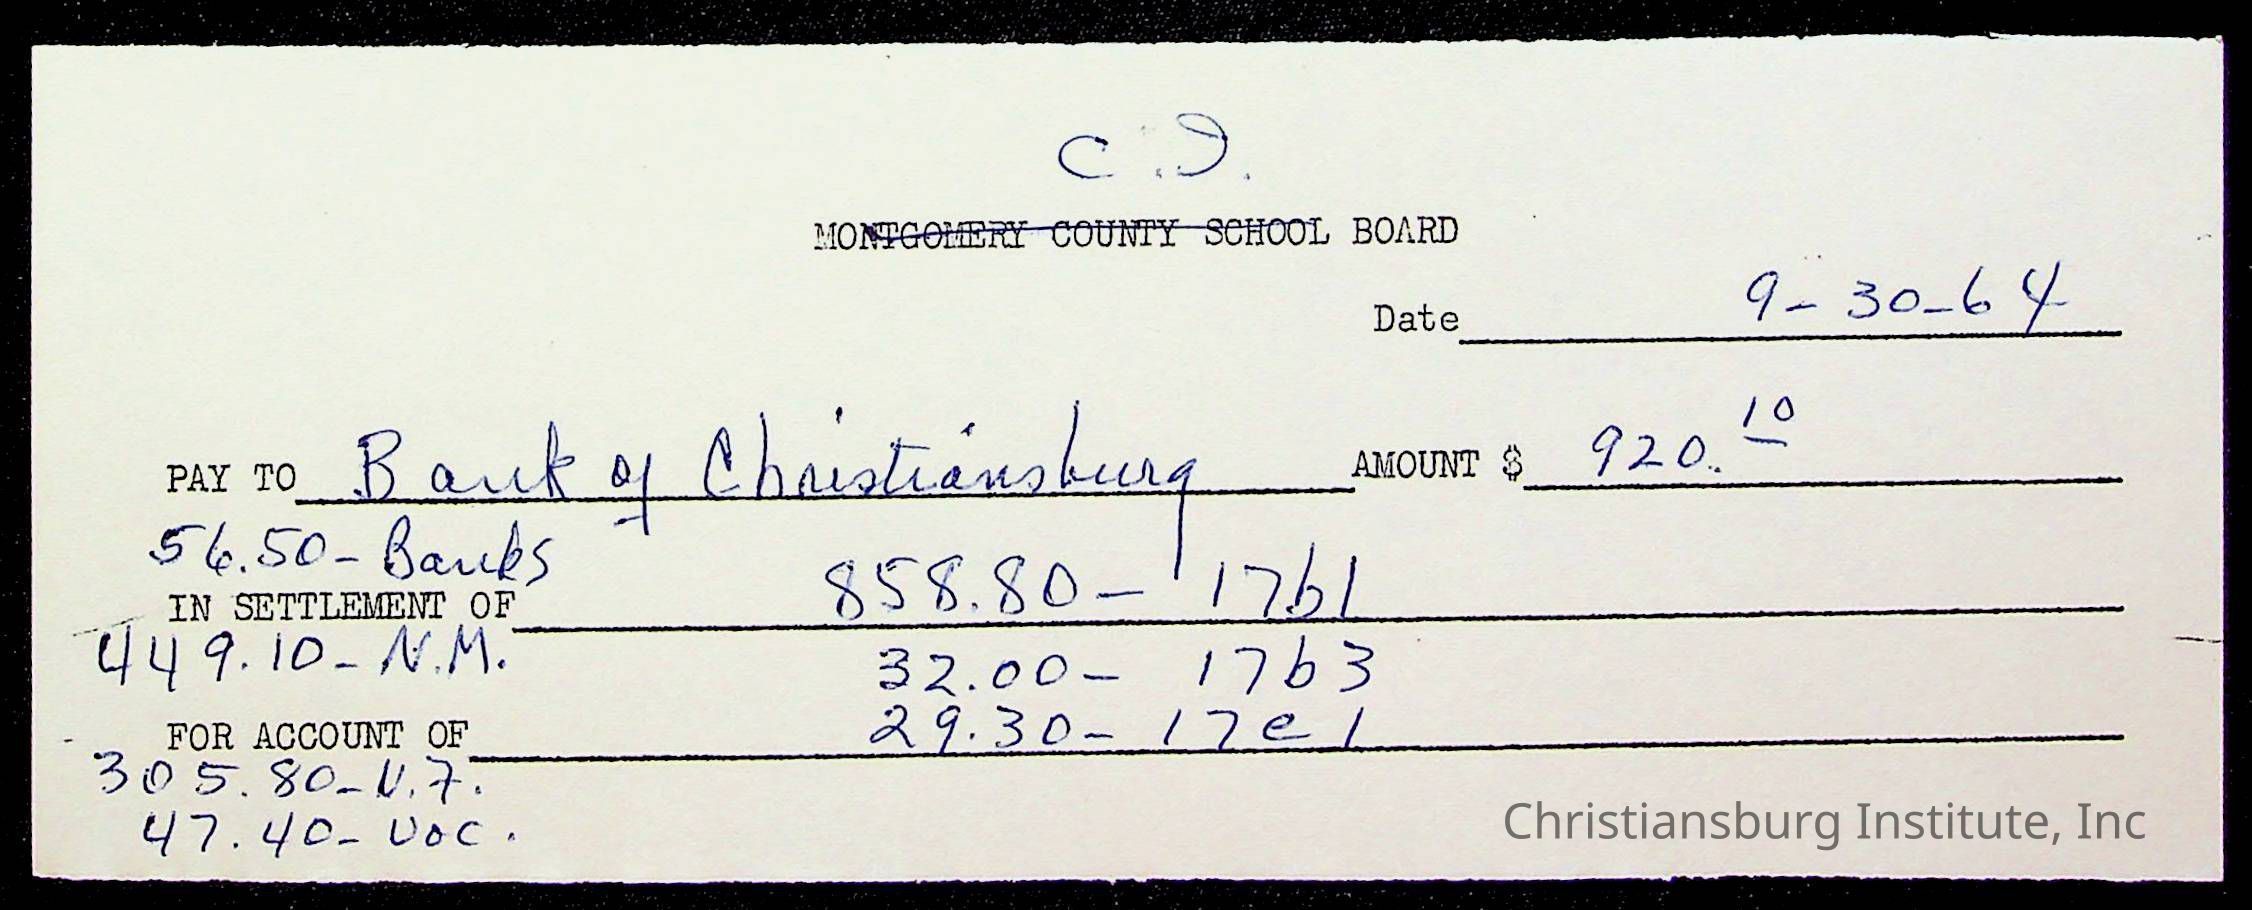 C.I.
MONTGOMERY COUNTY SCHOOL BOARD
Date 9-30-64
PAY TO Bank of Christiansburg AMOUNT $ 920.10
56.50-Banks
IN SETTLEMENT OF 858.80- 17b1
449.10-N.M.
32.00- 17b3
FOR ACCOUNT OF 29.30- 17e1
305.80-V.F.
47.40-Voc.
Christiansburg Institute, Inc